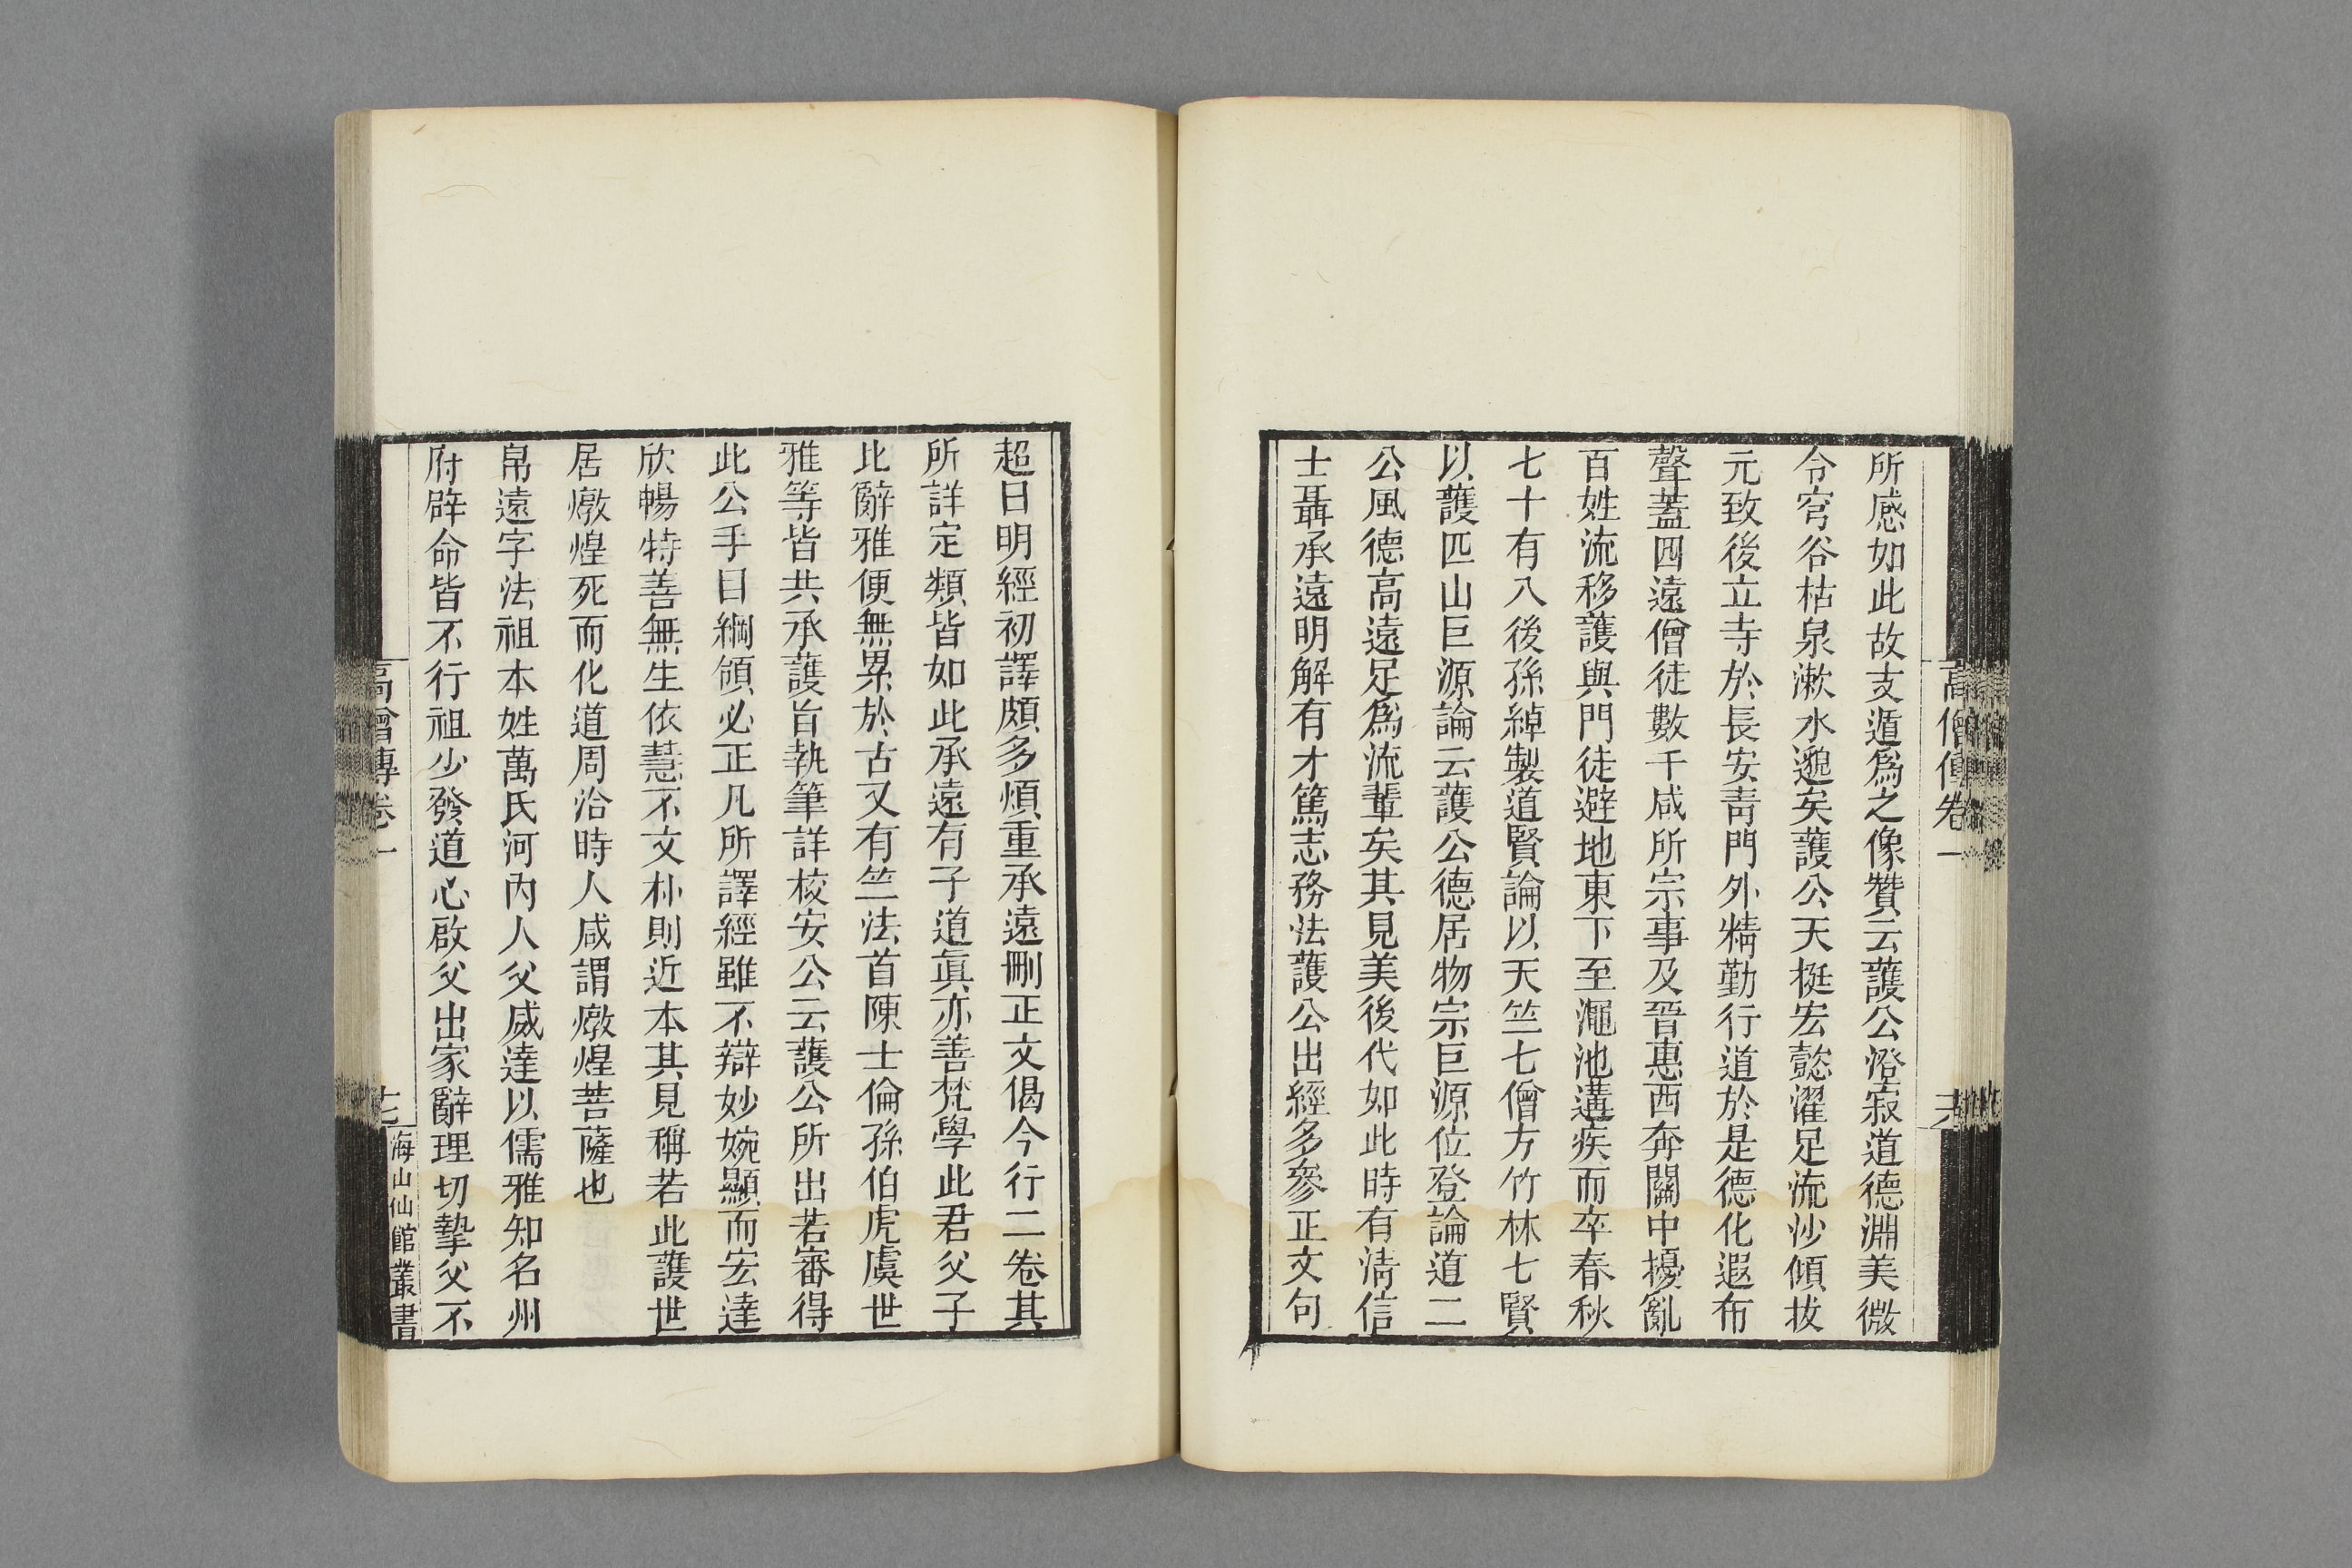 高僧傳卷一
所感如此故支遁爲之像贊云護公澄寂道德淵美微
令穹谷枯泉漱水邈矣護公天挺宏懿濯足流沙傾拔
元致後立寺於長安靑門外精勤行道於是德化遐布
聲蓋四遠僧徒數千咸所宗事及晉惠西奔關中擾亂
百姓流移護與門徒避地東下至澠池遘疾而卒春秋
七十有八後孫綽製道賢論以天竺七僧方竹林七賢
以護匹山巨源論云護公德居物宗巨源位登論道二
公風德高遠足爲流輩矣其見美後代如此時有淸信
士聶承遠明解有才篤志務法護公出經多參正文句
超日明經初譯頗多煩重承遠刪正文偈今行二卷其
所詳定類皆如此承遠有子道眞亦善梵學此君父子
比辭雅便無累於古又有竺法首陳士倫孫伯虎虞世
雅等皆共承護旨執筆詳校安公云護公所出若審得
此公手目綱領必正凡所譯經雖不辯妙婉顯而宏達
欣暢特善無生依慧不文朴則近本其見稱若此護世
居燉煌死而化道周洽時人咸謂燉煌菩薩也
帛遠字法祖本姓萬氏河內人父威達以儒雅知名州
府辟命皆不行祖少發道心啟父出家辭理切摯父不
高僧傳卷一
十七
海山仙館叢書